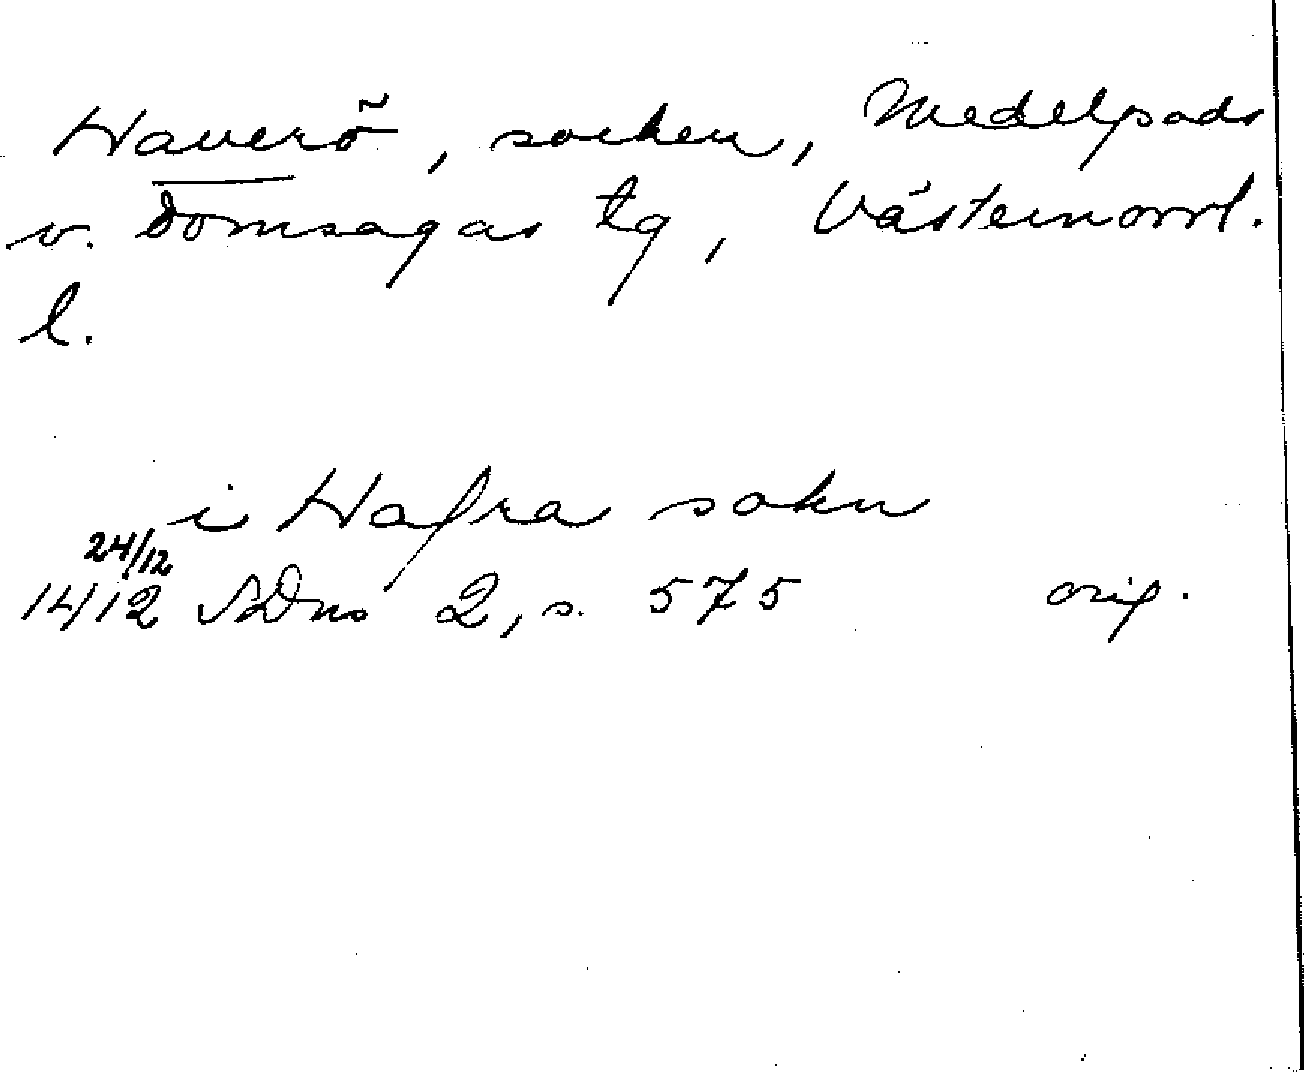 Haverö, socken, Medelpads
v. domsagas tg, Västernorrl.
l.
i Hafra sokn
24/12
1412 SDns 2, s. 575 orig.